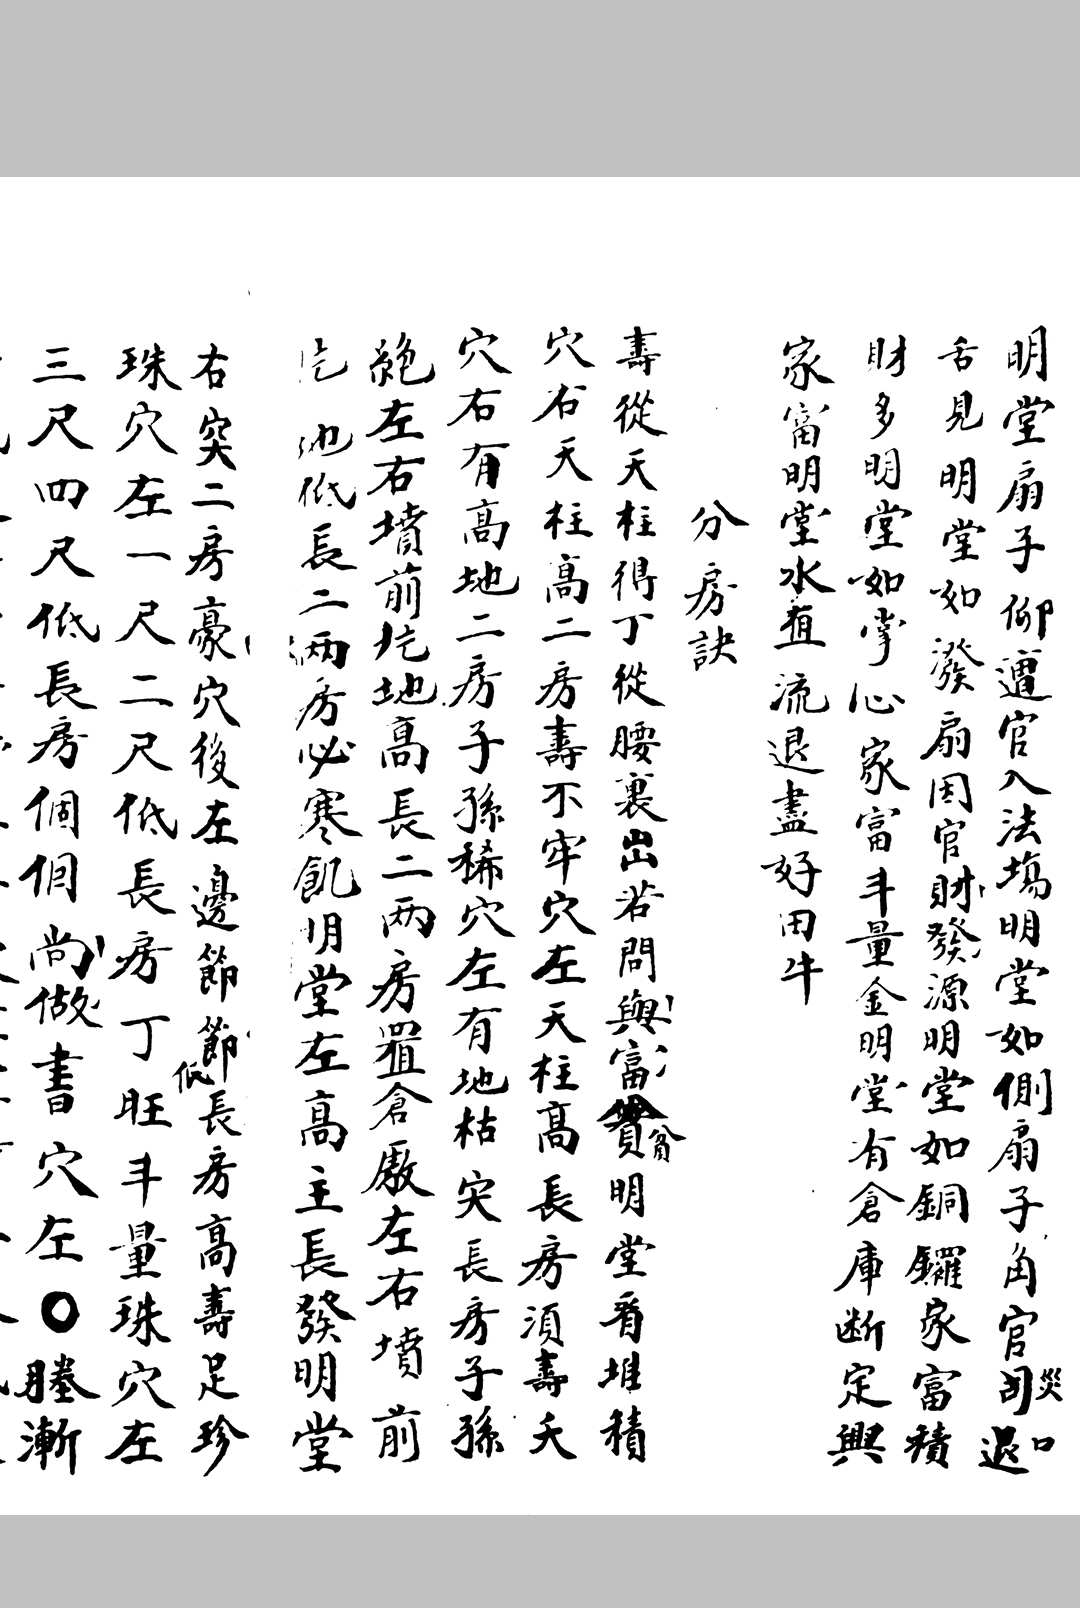 明堂扇子仰遭官入法塲明堂如側扇子角官司災退口
舌見明堂如潑扇因官財發源明堂如銅鑼家富積
財多明堂如掌心家富斗量金明堂有倉庫断定興
家富明堂水直流退盡好田牛
分房訣
壽從天柱得丁從腰裏出若問興富貧明堂看堆積
穴右天柱高二房壽不牢穴左天柱髙長房須壽夭
穴右有髙地二房子孫稀穴左有地枯突長房子孫
絶左右墳前圪地髙長二两房置倉廒左右墳前
圪地低長二两房必寒飢明堂左高主長發明堂
右突二房豪穴後左邊節節低長房高壽足珍
珠穴左一尺二尺低長房丁旺斗量珠穴左
三尺四尺低長房個個尚做書穴左〇塍漸